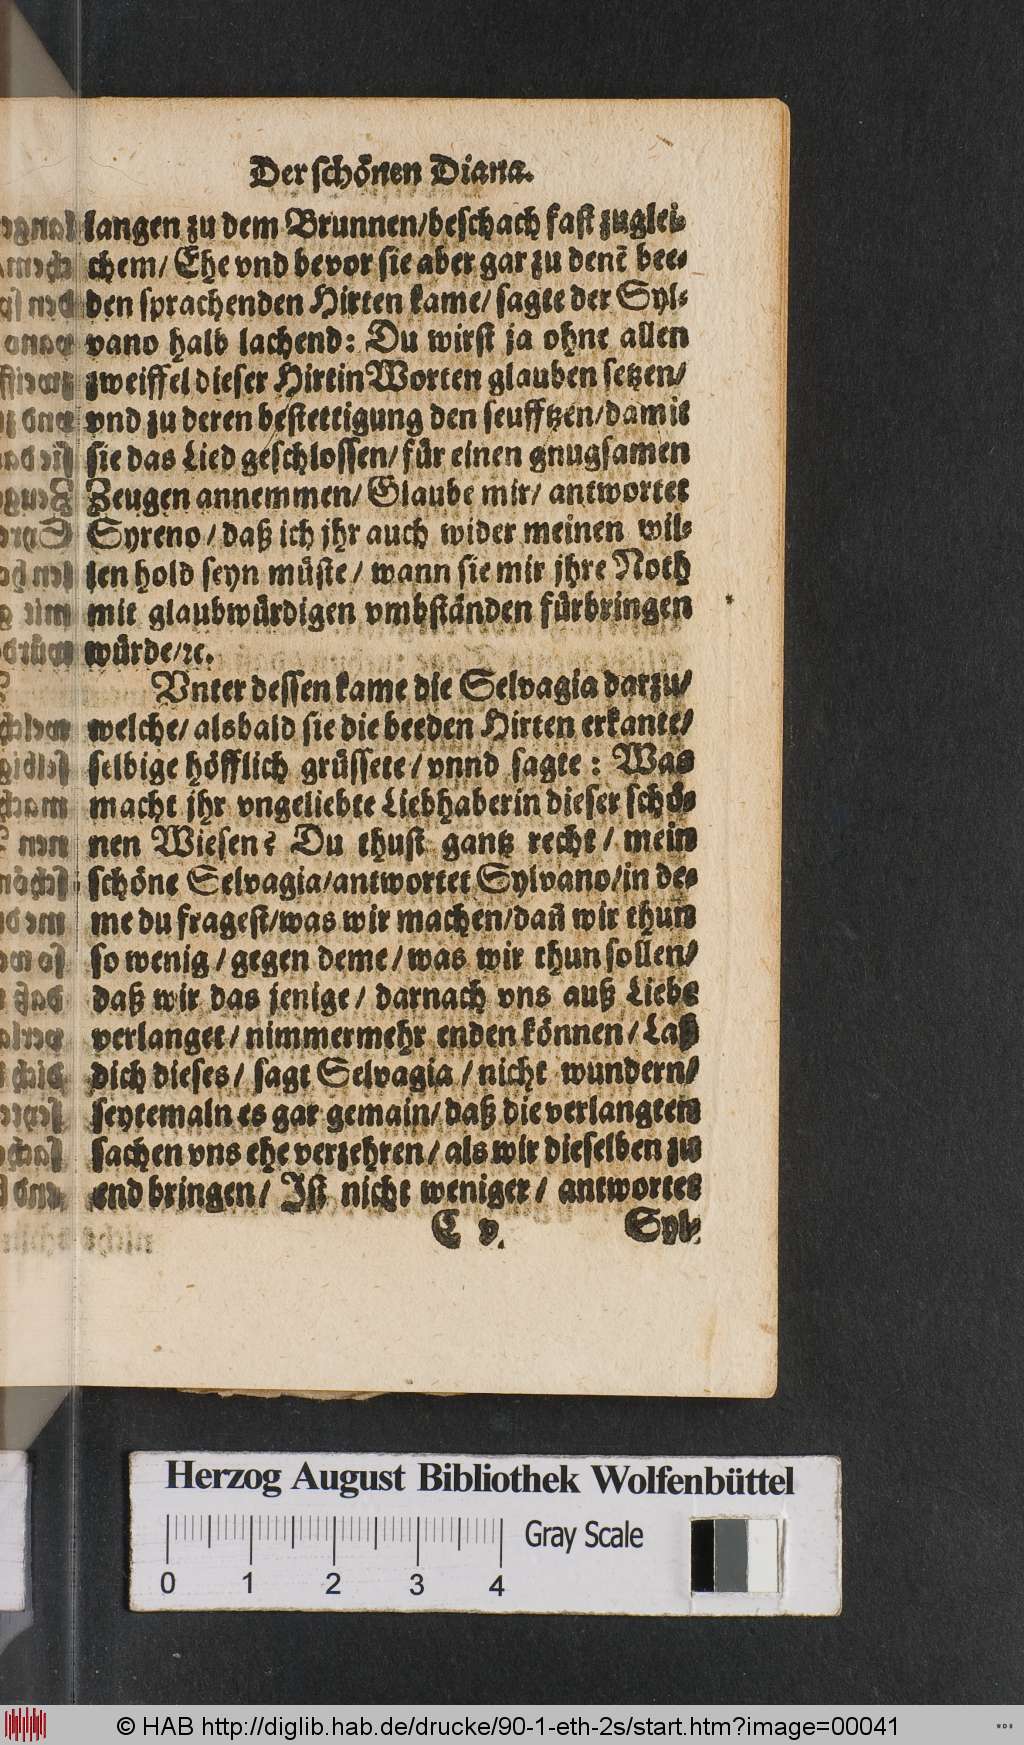 Der ſchönen Diana.
langen zu dem Brunnen/beſchach faſt zuglei-
chem/ Ehe vnd bevor ſie aber gar zu denẽ bee-
den ſprachenden Hirten kame/ ſagte der Syl-
vano halb lachend: Du wirſt ja ohne allen
zweiffel dieſer Hirtin Worten glauben ſetzen/
vnd zu deren beſtettigung den ſeufftzen/damit
ſie das Lied geſchloſſen/ für einen gnugſamen
Zeugen annemmen/ Glaube mir/ antwortet
Syreno/ daß ich jhr auch wider meinen wil-
len hold ſeyn müſte/ wann ſie mir jhre Noth
mit glaubwürdigen vmbſtänden fürbringen
würde/ꝛc.
Vnter deſſen kame die Selvagia darzu/
welche/ alsbald ſie die beeden Hirten erkante/
ſelbige höfflich grüſſete/ vnnd ſagte: Was
macht jhr vngeliebte Liebhaber in dieſer ſchö-
nen Wieſen? Du thuſt gantz recht/ mein
ſchöne Selvagia/antwortet Sylvano/in de-
me du frageſt/was wir machen/dañ wir thun
ſo wenig/ gegen deme/ was wir thun ſollen/
daß wir das jenige/ darnach vns auß Liebe
verlanget/ nimmermehr enden können/ Laß
dich dieſes/ ſagt Selvagia/ nicht wundern/
ſeytemaln es gar gemain/ daß die verlangten
ſachen vns ehe verzehren/ als wir dieſelben zu
end bringen/ Iſt nicht weniger/ antwortet
C v. Syl-
Herzog August Bibliothek Wolfenbüttel
Gray Scale
0 1 2 3 4
© HAB http://diglib.hab.de/drucke/90-1-eth-2s/start.htm?image=00041